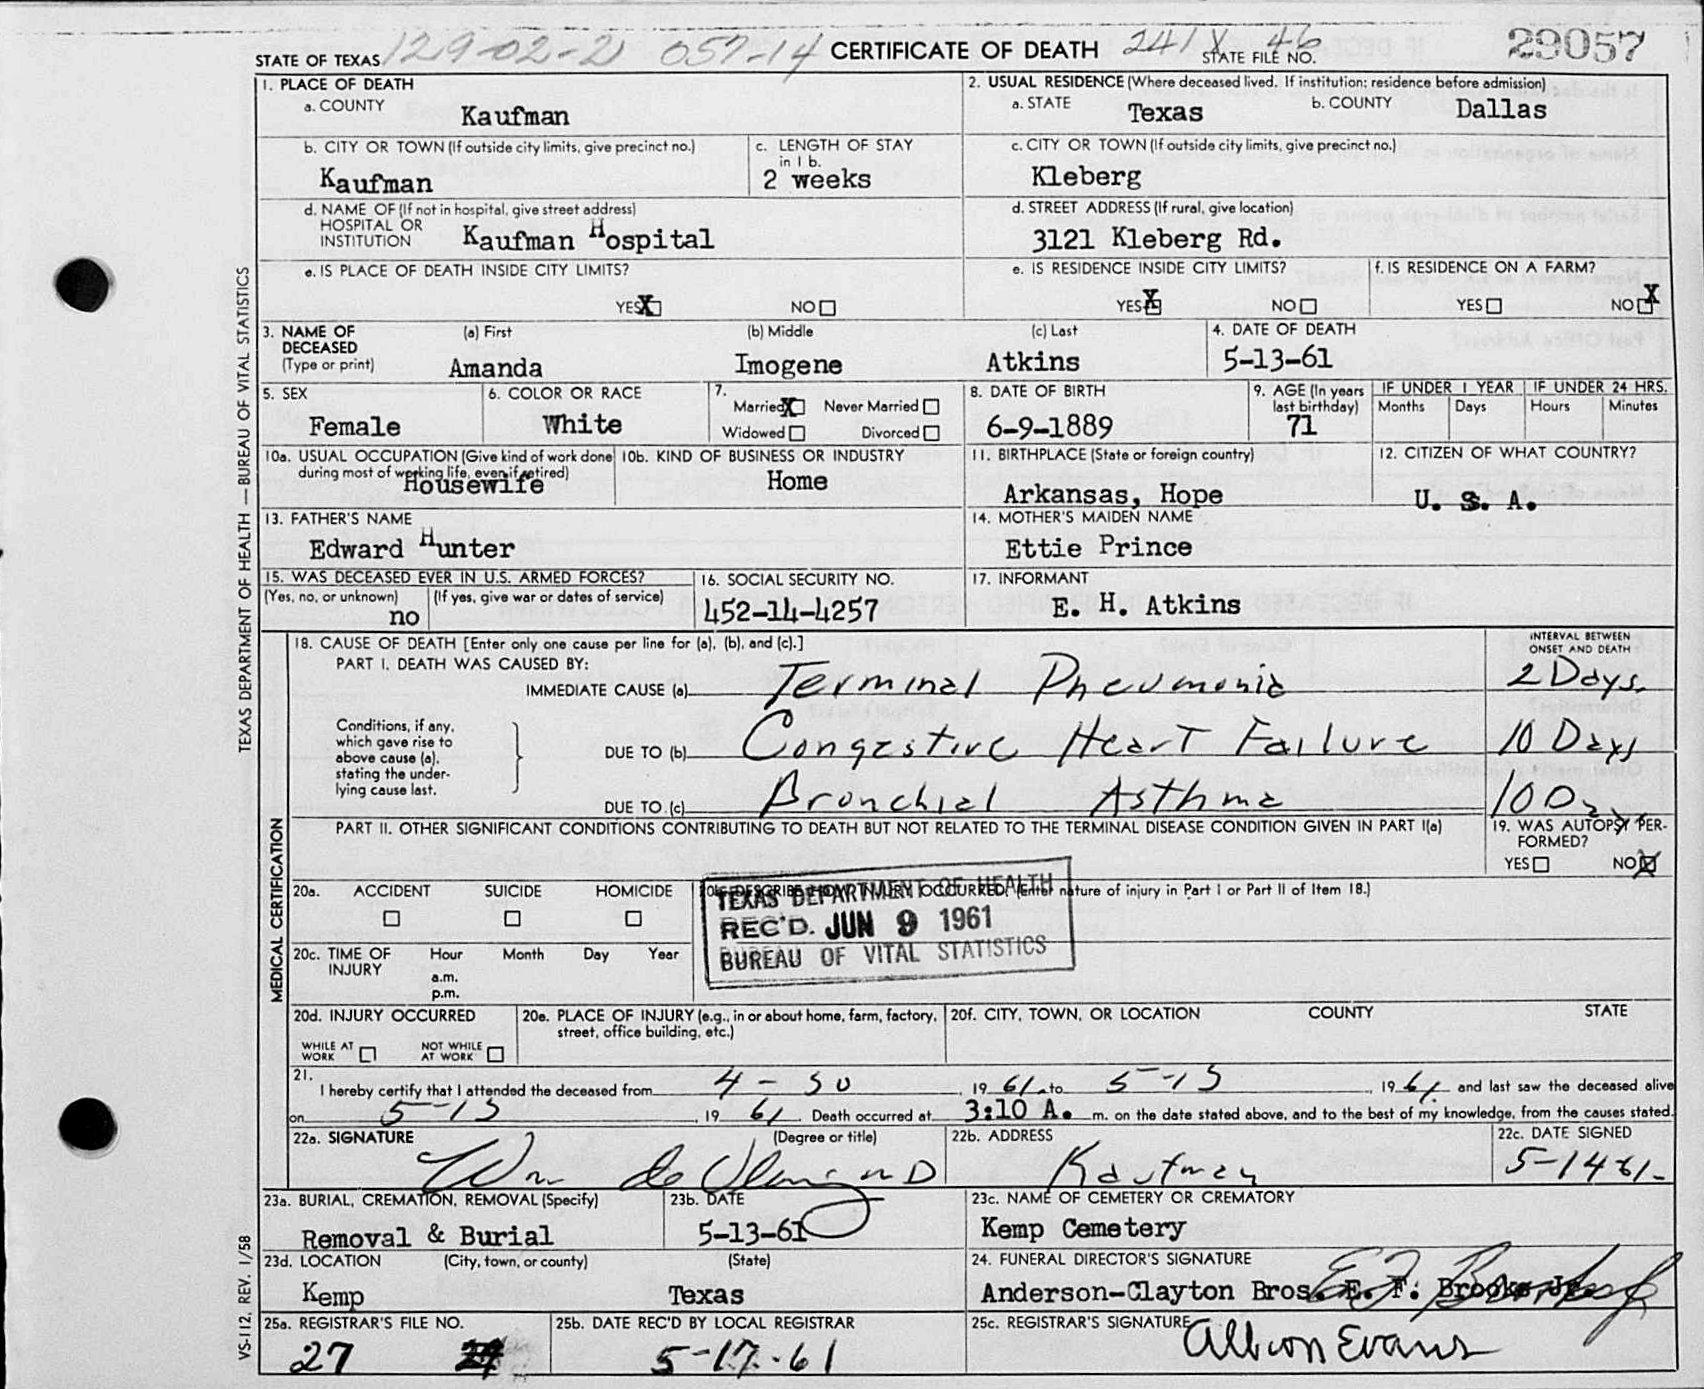 STATE OF TEXAS 129-02-2 057-14 CERTIFICATE OF DEATH 241X 46 STATE FILE NO. 29057
1. PLACE OF DEATH
a. COUNTY Kaufman
2. USUAL RESIDENCE (Where deceased lived. If institution: residence before admission)
a. STATE Texas b. COUNTY Dallas
b. CITY OR TOWN (If outside city limits, give precinct no.) Kaufman
c. LENGTH OF STAY in 1 b. 2 weeks
c. CITY OR TOWN (If outside city limits, give precinct no.) Kleberg
d. NAME OF (If not in hospital, give street address)
HOSPITAL OR
INSTITUTION Kaufman Hospital
d. STREET ADDRESS (If rural, give location)
3121 Kleberg Rd.
e. IS PLACE OF DEATH INSIDE CITY LIMITS?
YES X NO
e. IS RESIDENCE INSIDE CITY LIMITS?
YES X NO
f. IS RESIDENCE ON A FARM?
YES NO X
3. NAME OF DECEASED (Type or print)
(a) First Amanda
(b) Middle Imogene
(c) Last Atkins
4. DATE OF DEATH 5-13-61
5. SEX Female
6. COLOR OR RACE White
7. Married X Never Married
Widowed Divorced
8. DATE OF BIRTH 6-9-1889
9. AGE (In years last birthday) 71
IF UNDER 1 YEAR Months Days
IF UNDER 24 HRS. Hours Minutes
10a. USUAL OCCUPATION (Give kind of work done during most of working life, even if retired)
Housewife
10b. KIND OF BUSINESS OR INDUSTRY
Home
11. BIRTHPLACE (State or foreign country)
Arkansas, Hope
12. CITIZEN OF WHAT COUNTRY?
U. S. A.
13. FATHER'S NAME
Edward Hunter
14. MOTHER'S MAIDEN NAME
Ettie Prince
15. WAS DECEASED EVER IN U.S. ARMED FORCES?
(Yes, no, or unknown) no (If yes, give war or dates of service)
16. SOCIAL SECURITY NO.
452-14-4257
17. INFORMANT
E. H. Atkins
18. CAUSE OF DEATH [Enter only one cause per line for (a), (b), and (c).]
INTERVAL BETWEEN ONSET AND DEATH
PART I. DEATH WAS CAUSED BY:
IMMEDIATE CAUSE (a) Terminal Pneumonia 2 Days.
Conditions, if any, which gave rise to above cause (a), stating the underlying cause last.
DUE TO (b) Congestive Heart Failure 10 Days
DUE TO (c) Bronchial Asthma 10 Day
PART II. OTHER SIGNIFICANT CONDITIONS CONTRIBUTING TO DEATH BUT NOT RELATED TO THE TERMINAL DISEASE CONDITION GIVEN IN PART I(a)
19. WAS AUTOPSY PERFORMED?
YES NO X
20a. ACCIDENT SUICIDE HOMICIDE
20b. DESCRIBE HOW INJURY OCCURRED. (Enter nature of injury in Part I or Part II of Item 18.)
TEXAS DEPARTMENT OF HEALTH
REC'D. JUN 9 1961
BUREAU OF VITAL STATISTICS
20c. TIME OF INJURY Hour Month Day Year
a.m.
p.m.
20d. INJURY OCCURRED
WHILE AT WORK NOT WHILE AT WORK
20e. PLACE OF INJURY (e.g., in or about home, farm, factory, street, office building, etc.)
20f. CITY, TOWN, OR LOCATION COUNTY STATE
21. I hereby certify that I attended the deceased from 4-30, 1961, to 5-13, 1961, and last saw the deceased alive
on 5-13, 1961. Death occurred at 3:10 A. m. on the date stated above, and to the best of my knowledge, from the causes stated.
22a. SIGNATURE (Degree or title)
Wm
22b. ADDRESS
Kaufman
22c. DATE SIGNED
5-14-61-
23a. BURIAL, CREMATION, REMOVAL (Specify)
Removal & Burial
23b. DATE
5-13-61
23c. NAME OF CEMETERY OR CREMATORY
Kemp Cemetery
23d. LOCATION (City, town, or county) (State)
Kemp Texas
24. FUNERAL DIRECTOR'S SIGNATURE
Anderson-Clayton Bros. E. F. Brooks Jr.
25a. REGISTRAR'S FILE NO.
27
25b. DATE REC'D BY LOCAL REGISTRAR
5-17-61
25c. REGISTRAR'S SIGNATURE
Albion Evans
TEXAS DEPARTMENT OF HEALTH — BUREAU OF VITAL STATISTICS
MEDICAL CERTIFICATION
VS-112, REV. 1/58